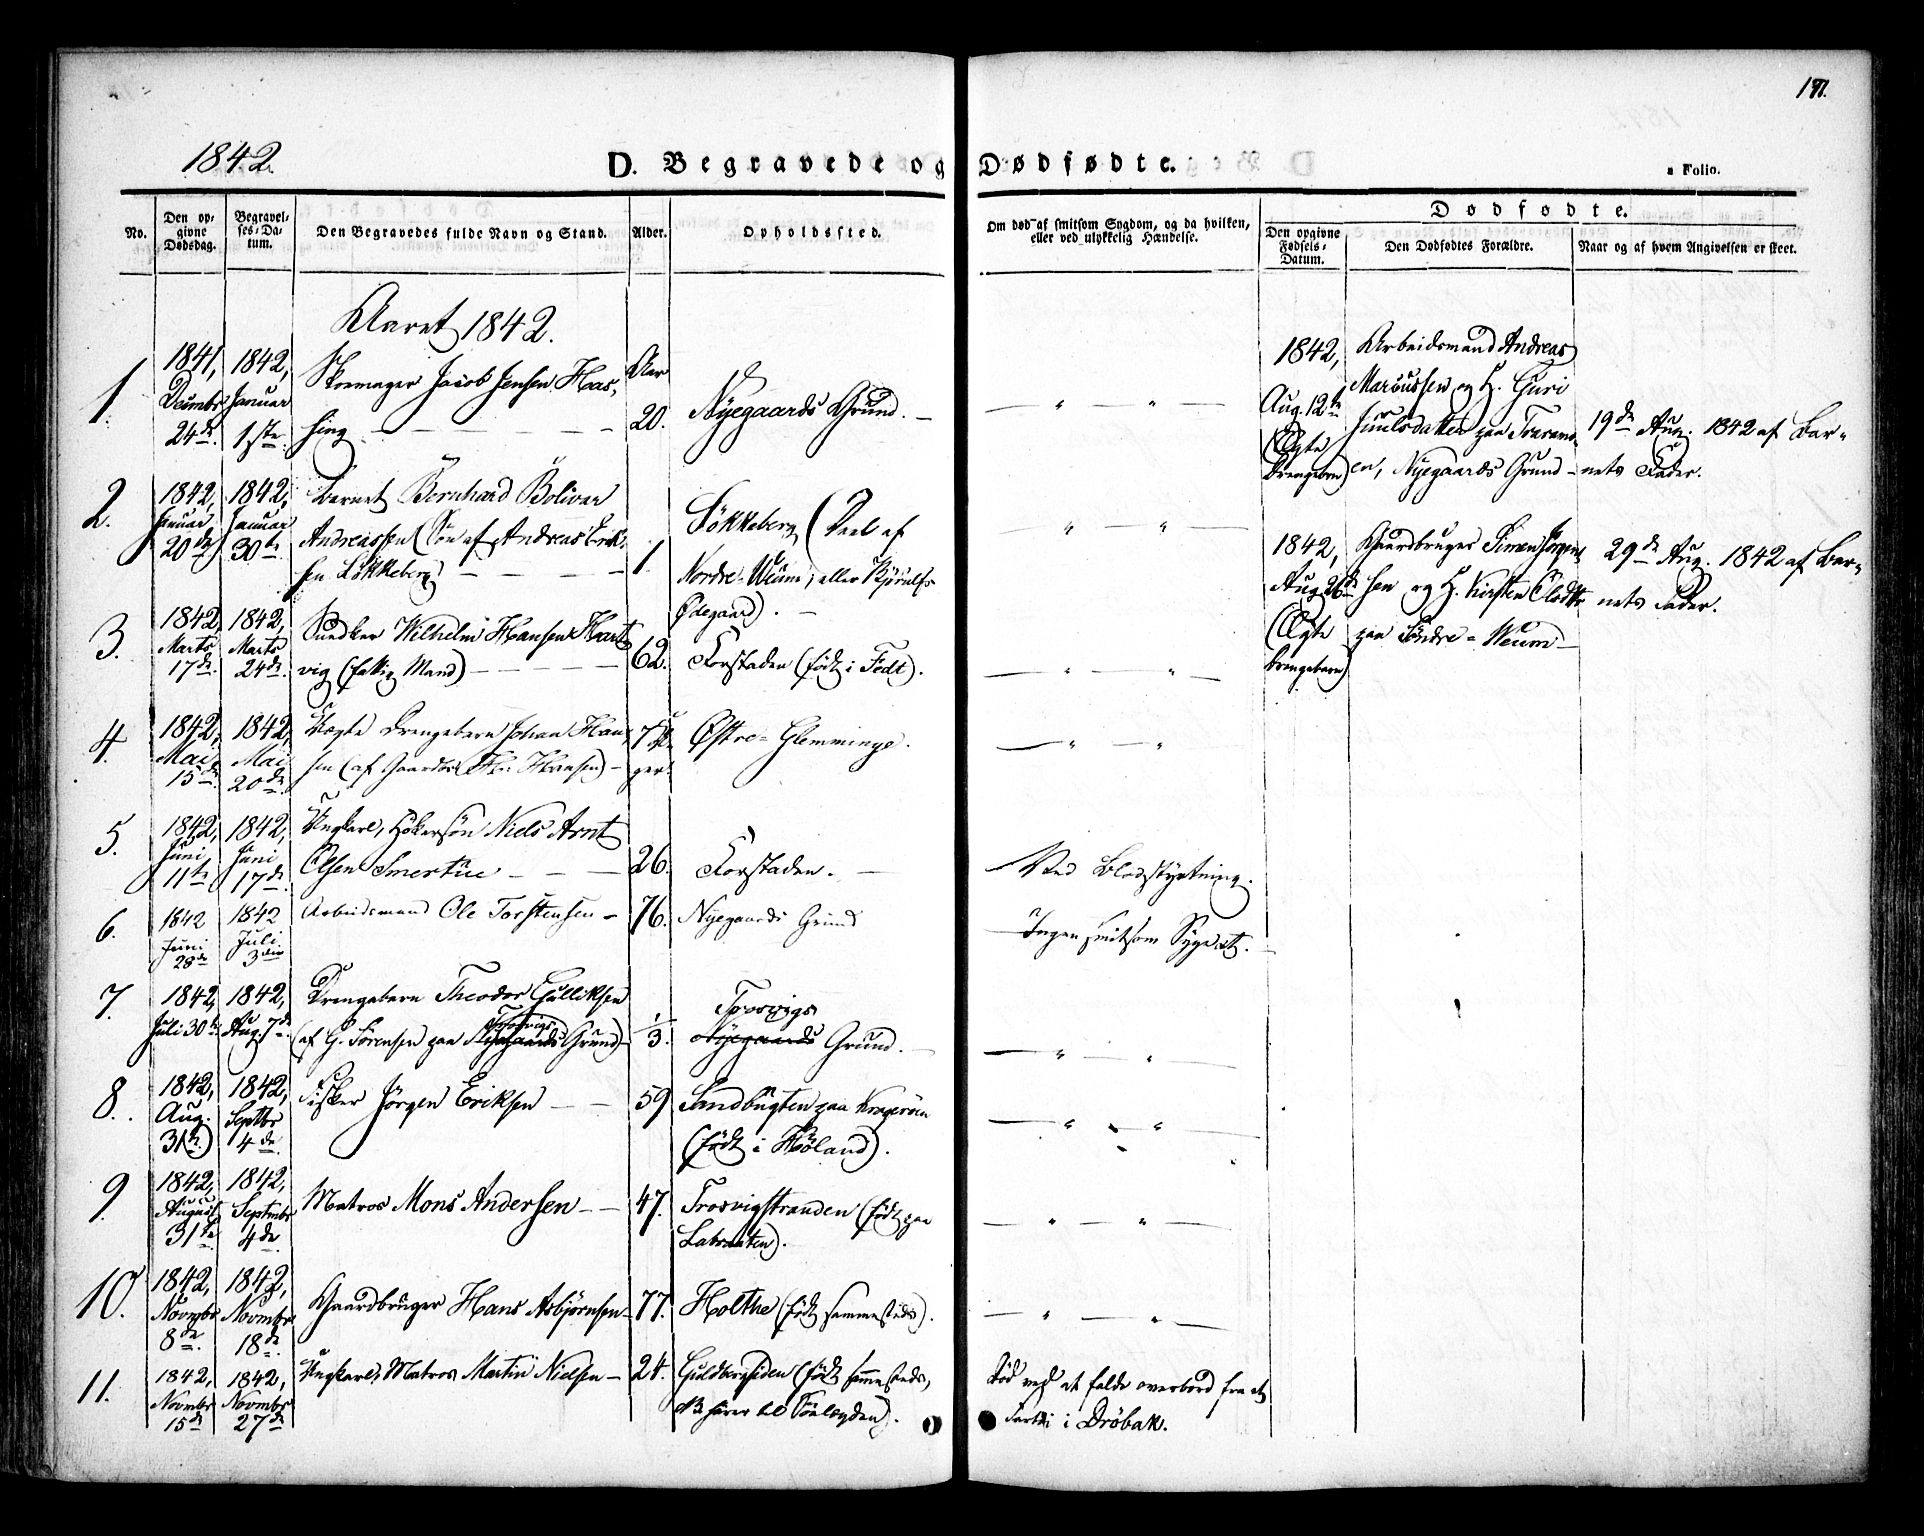 191.
1842.
D. Begravede og Dødfødte.
Folio.
No.
Den opgivne Dødsdag.
Begravelses-Datum.
Den Begravedes fulde Navn og Stand.
Alder.
Opholdssted.
Om død af smitsom Sygdom, og da hvilken, eller ved ulykkelig Hændelse.
Dødfødte.
Den opgivne Fødsels-Datum.
Den Dødfødtes Forældre.
Naar og af hvem Angivelsen er skeet.
Aaret 1842.
1. 1841, Decembr 24de. 1842, Januar 1ste. Skomager Jacob Jensen Has,
sing Aar 20. Nyegaards Grund.
2. 1842, Januar 20de 1842, Januar 30te Barnet Bernhard Bolivar
Andreassen (Søn af Andreas Erik,
sen Løkkeberg) 1. Løkkeberg (Deel af
Nordre-Weum, eller
Ødegaard).
3. 1842, Marts 17de. 1842, Marts 24de. Snedker Wilhelm Hansen Hart
vig (fattig Mand) 62. Forstaden (født i Fedt).
4. 1842, Mai 15de. 1842, Mai 20de. Uægte Drengebarn Johan Han,
sen (af Hansen) 7 Da,
ger. Østre-Glemminge.
5. 1842, Juni 11te 1842, Juni 17de. Ungkarl, Høkersøn Niels Arnt
Olsen Smertue 26. Forstaden. Ved Blodstyrtning.
6. 1842 Juni 28de 1842 Juli 3die Arbeidsmand Ole Torstensen 76. Nyegaards Grund Ingen smitsom Sygdom.
7. 1842, Juli 30te 1842, Aug. 7de. Drengebarn Theodor Gulliksen
(af G. Sørensen paa Nyegaards Trosvigs Grund) 1/3. Trosvigs
Nyegaards Grund.
8. 1842, Aug. 31te. 1842, Septbr 4de. Fisker Jørgen Eriksen 59 Sandbugten paa Kragerøen
(født i Høland).
9. 1842, August 31te 1842, Septembr 4de. Matros Mons Andersen 47. Trosvigstranden (født paa
Labraaten).
10. 1842, Novmbr 8de. 1842, Novmbr 18de. Gaardbruger Hans Asbjørnsen 77. Holthe (født sammesteds).
11. 1842, Novmbr 15de 1842, Novmbr 27de Ungkarl, Matros Martin Nielsen 24. Guldbergsiden (født sammesteds,
NB hører til Sønlægden). Død ved at falde overbord fra et
Fartøi i Drøbak.
1842, Aug. 12te (Ægte Drengebarn) Arbeidsmand Andreas
Marcussen og H. Guri
Juulsdatter paa Traraen,
en, Nyegaards Grund 19de Aug. 1842 af Bar-
nets Fader.
1842, Aug. 26de (Ægte Drengebarn) Gaardbruger Simen Jørgen,
sen og H. Kirsten Olsdtr
paa Søndre-Weum 29de Aug. 1842 af Bar-
nets Fader.